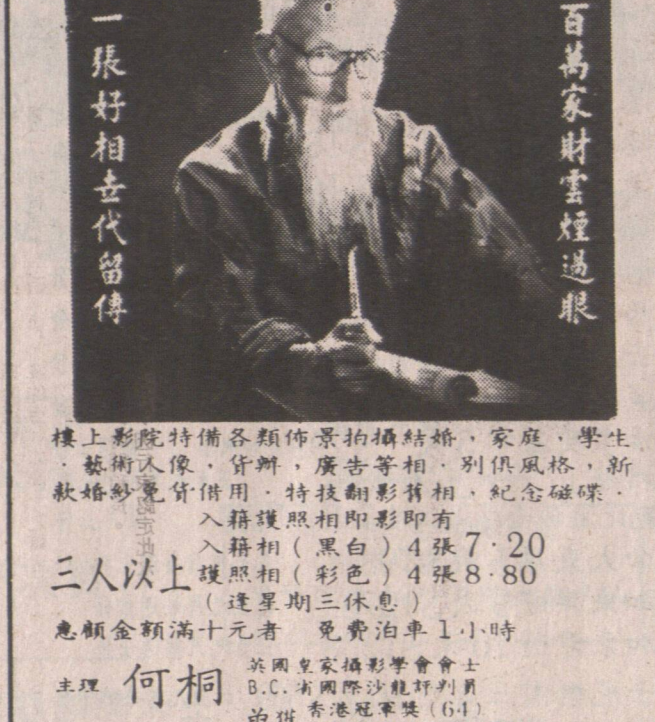 百萬家財雲煙過眼
一張好相世代留傳
樓上影院特備各類佈景拍攝結婚，家庭，學生
．藝術人像，貨辦，廣告等相．別俱風格，新
款婚紗免貨借用．特技翻影舊相．紀念磁碟．
入籍護照相即影即有
三人以上
入籍相（黑白）4張7.20
護照相（彩色）4張8.80
（逢星期三休息）
惠顧金額滿十元者 免費泊車1小時
主理 何桐
英國皇家攝影學會會士
B.C.省國際沙龍評判員
曾獲 香港冠軍獎（64）